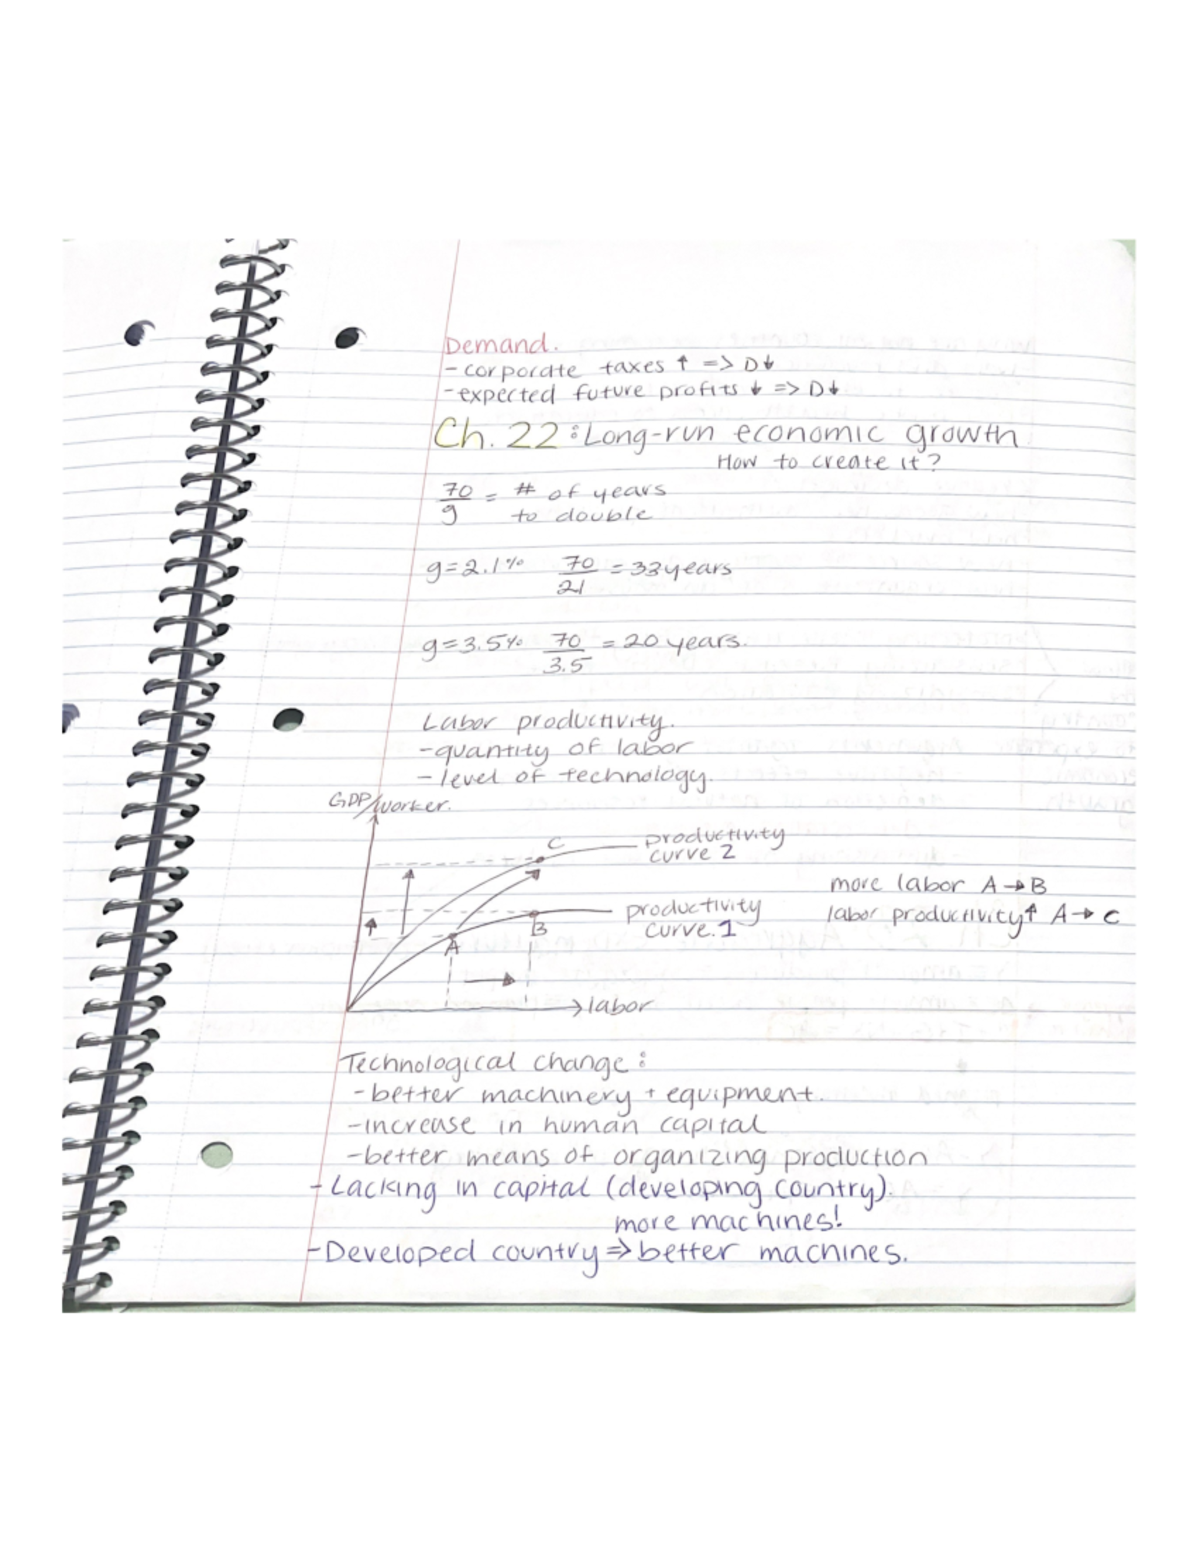 Demand.
- corporate taxes ↑ => D↓
- expected future profits ↓ => D↓
Ch. 22: Long-run economic growth
How to create it?
70/g = # of years to double
g=2.1% 70/2.1 = 33 years
g=3.5% 70/3.5 = 20 years.
Labor productivity.
- quantity of labor
- level of technology.
GDP/worker.
C
productivity
curve 2
more labor A→B
productivity
curve.1
labor productivity↑ A→C
B
A
labor
Technological change:
- better machinery + equipment.
- increase in human capital
- better means of organizing production
- Lacking in capital (developing country).
more machines!
- Developed country => better machines.